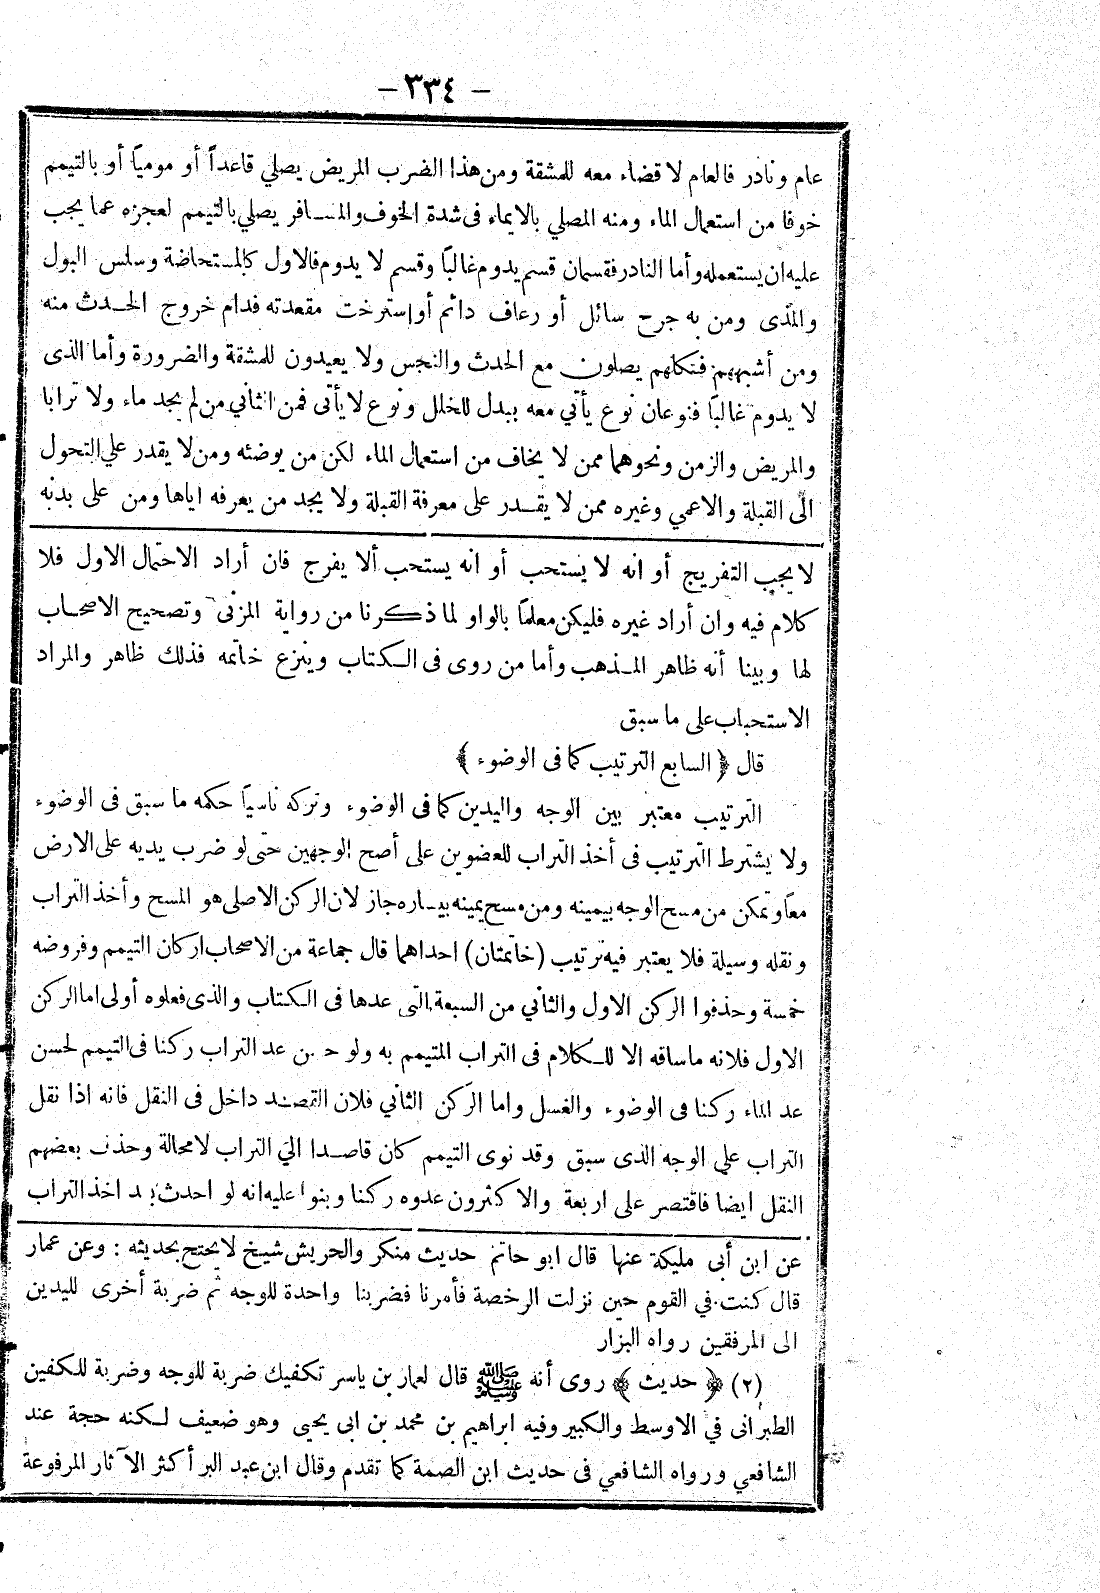 - ٣٣٤ -
عام ونادر فالعام لا قضاء معه للمشقة ومن هذا الضرب المريض يصلي قاعداً أو مومياً أو بالتيمم
خوفا من استعمال الماء ومنه المصلي بالايماء فى شدة الخوف والمسافر يصلي بالتيمم لعجزه عما يجب
عليه ان يستعمله وأما النادر فقسمان قسم يدوم غالباً وقسم لا يدوم فالاول كالمستحاضة وسلس البول
والمذى ومن به جرح سائل أو رعاف دائم أو استرخت مقعدته فدام خروج الحدث منه
ومن أشبههم فكلهم يصلون مع الحدث والنجس ولا يعيدون للمشقة والضرورة وأما الذى
لا يدوم غالباً فنوعان نوع يأتي معه ببدل للخلل ونوع لا يأتى فمن الثاني من لم يجد ماء ولا ترابا
والمريض والزمن ونحوهما ممن لا يخاف من استعمال الماء لكن من يوضئه ومن لا يقدر على التحول
الى القبلة والاعمي وغيره ممن لا يقدر على معرفة القبلة ولا يجد من يعرفه اياها ومن على بدنه
لا يجب التفريج أو انه لا يستحب أو انه يستحب ألا يفرج فان أراد الاحتمال الاول فلا
كلام فيه وان أراد غيره فليكن معلما بالواو لما ذكرنا من رواية المزنى وتصحيح الاصحاب
لها وبينا أنه ظاهر المذهب وأما من روى فى الكتاب وينزع خاتمه فذلك ظاهر والمراد
الاستحباب على ما سبق
قال ﴿ السابع الترتيب كما فى الوضوء ﴾
الترتيب معتبر بين الوجه واليدين كما فى الوضوء وتركه ناسياً حكمه ما سبق فى الوضوء
ولا يشترط الترتيب فى أخذ التراب للعضوين على أصح الوجهين حتى لو ضرب يديه على الارض
معاً وتمكن من مسح الوجه بيمينه ومن مسح يمينه بيساره جاز لان الركن الاصلى هو المسح وأخذ التراب
ونقله وسيلة فلا يعتبر فيه ترتيب (خاتمتان) احداهما قال جماعة من الاصحاب اركان التيمم وفروضه
خمسة وحذفوا الركن الاول والثاني من السبعة التى عدها فى الكتاب والذى فعلوه أولى اما الركن
الاول فلانه ما ساقه الا للكلام فى التراب المتيمم به ولو حسن عد التراب ركنا فى التيمم لحسن
عد الماء ركنا فى الوضوء والغسل واما الركن الثاني فلان القصد داخل فى النقل فانه اذا نقل
التراب على الوجه الذى سبق وقد نوى التيمم كان قاصدا الي التراب لا محالة وحذف بعضهم
النقل ايضا فاقتصر على اربعة والاكثرون عدوه ركنا وبنوا عليه انه لو احدث بعد اخذ التراب
عن ابن أبى مليكة عنها قال ابو حاتم حديث منكر والحريش شيخ لا يحتج بحديثه : وعن عمار
قال كنت في القوم حين نزلت الرخصة فأمرنا فضربنا واحدة للوجه ثم ضربة أخرى لليدين
الى المرفقين رواه البزار
(٢) ﴿ حديث ﴾ روى أنه ﷺ قال لعمار بن ياسر تكفيك ضربة للوجه وضربة للكفين
الطبرانى في الاوسط والكبير وفيه ابراهيم بن محمد بن ابى يحيى وهو ضعيف لكنه حجة عند
الشافعي ورواه الشافعي فى حديث ابن الصمة كما تقدم وقال ابن عبد البر أكثر الآثار المرفوعة